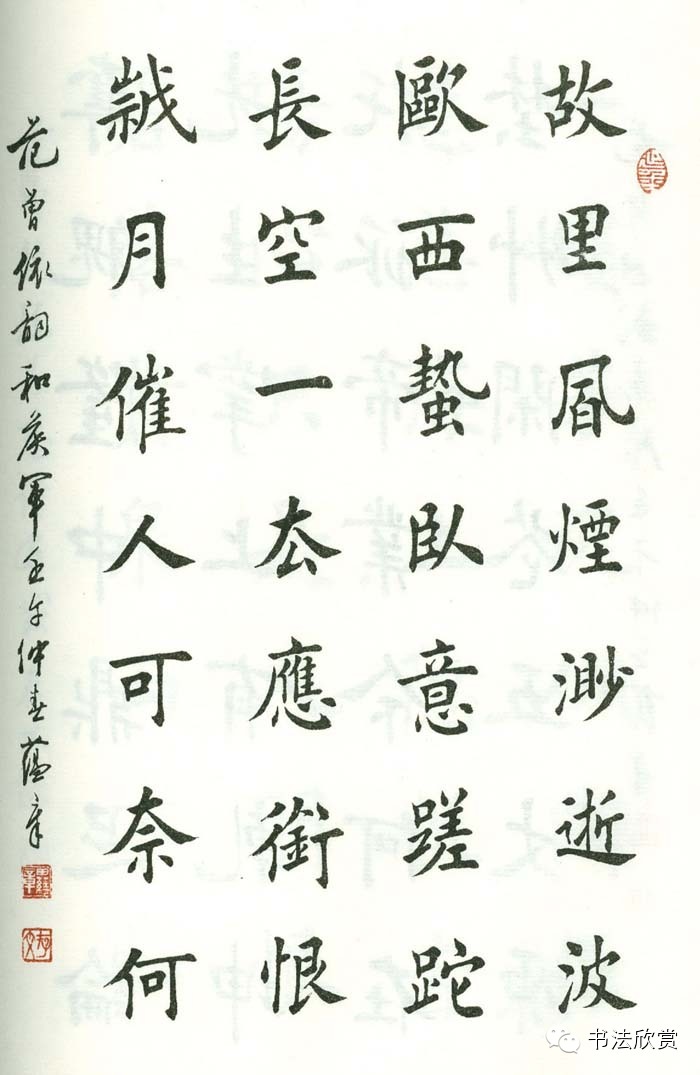 故里風煙渺逝波
歐西蟄臥意蹉跎
長空一去應銜恨
歲月催人可奈何
范曾依韵和炎軍壬午仲春蕴章
书法欣赏